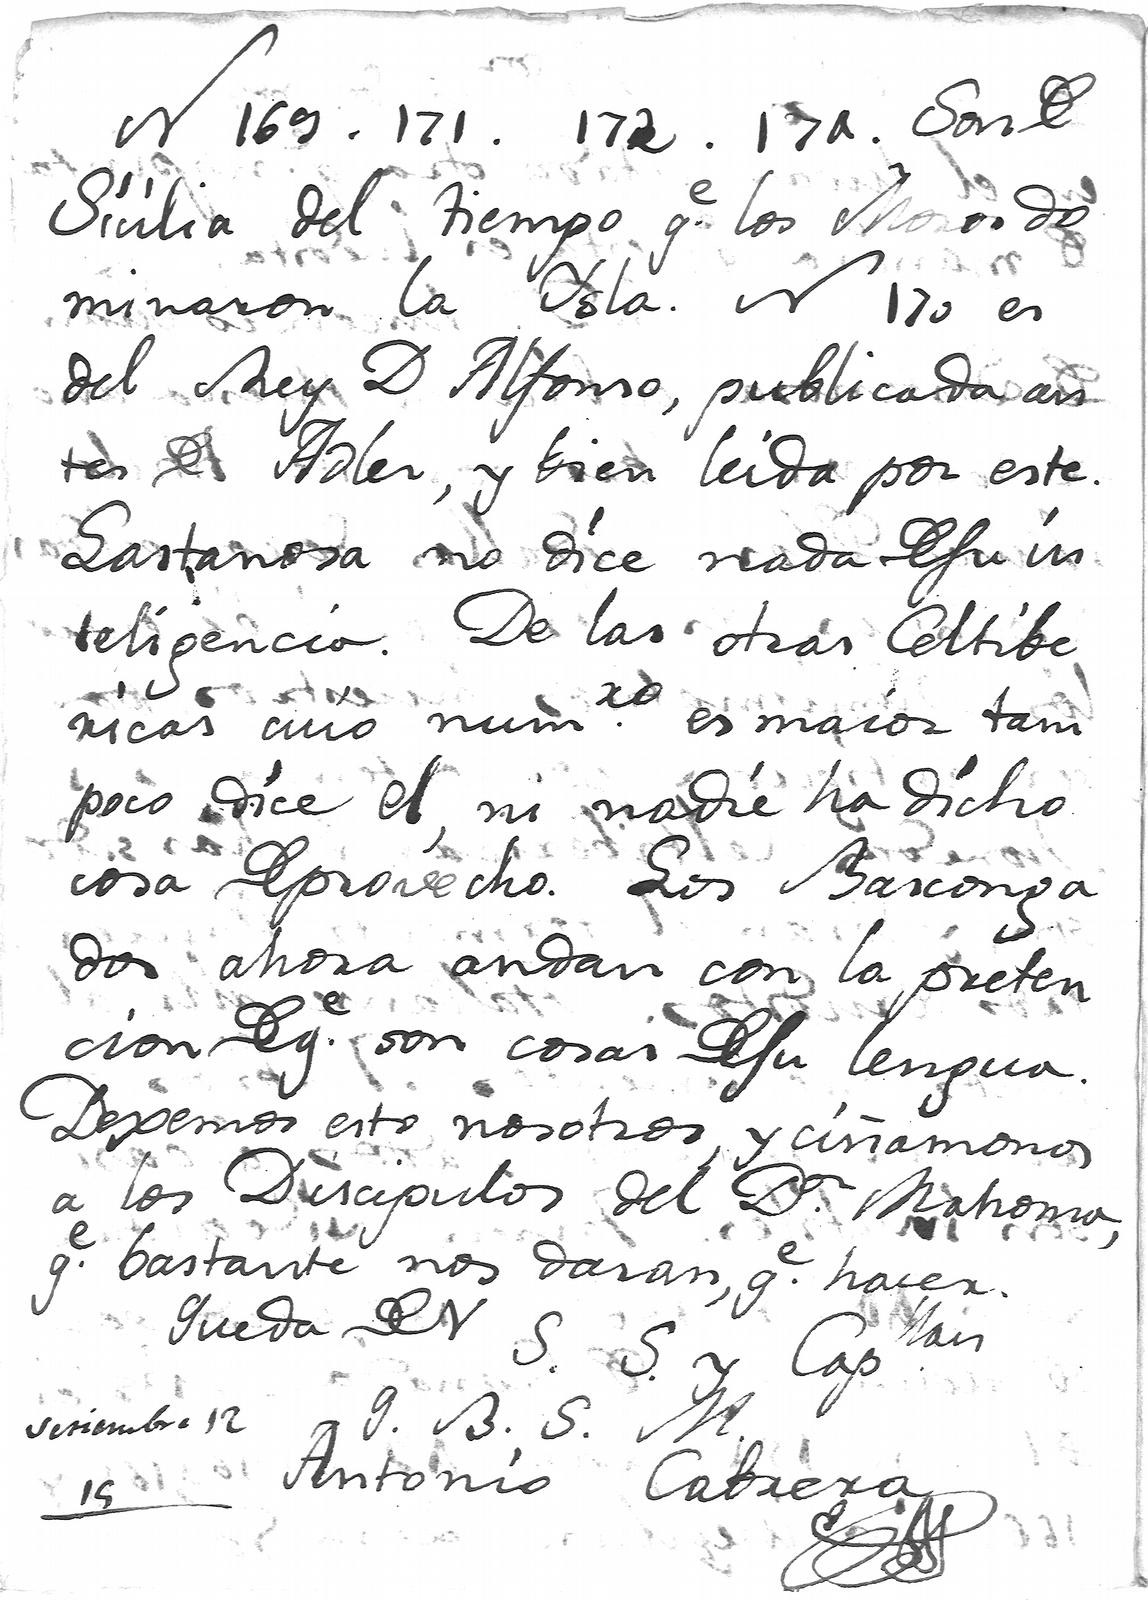 N 169. 171. 172. 17a. Son de
Sicilia del tiempo q.e los Moros do
minaron la Ysla. N 170 es
del Rey D Alfonso, publicada an
tes de Adler, y bien leida por este.
Lastanosa no dice nada de su in
teligencia. De las otras Celtibe
ricas cuio num.ro es maior tam
poco dice el, ni nadie ha dicho
cosa de provecho. Los Bascong​a
dos ahora andan con la preten
cion de q.e son cosas de su lengua.
Dexemos esto nosotros, y ciñamonos
a los Discipulos del D.r Mahoma,
q.e bastante nos daran, q.e hacer.
Queda de V S. S. y Cap.llan
q. B. S. M.
Setiembre 12
Antonio Cabrera